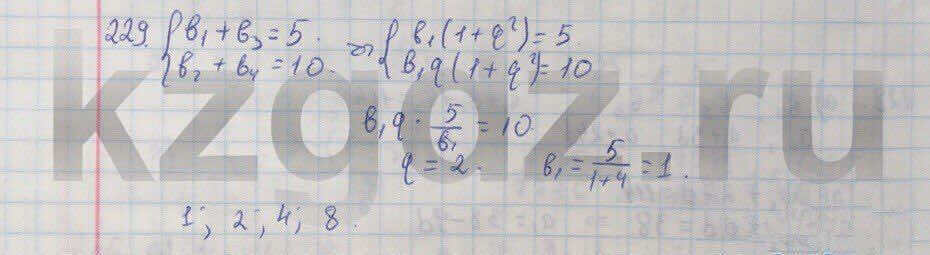 229. { b₁ + b₃ = 5. => { b₁(1+q²) = 5
{ b₂ + b₄ = 10. { b₁q(1+q²) = 10
b₁q · 5/b₁ = 10
q = 2. b₁ = 5/(1+4) = 1.
1; 2; 4; 8.
kzgdz.ru